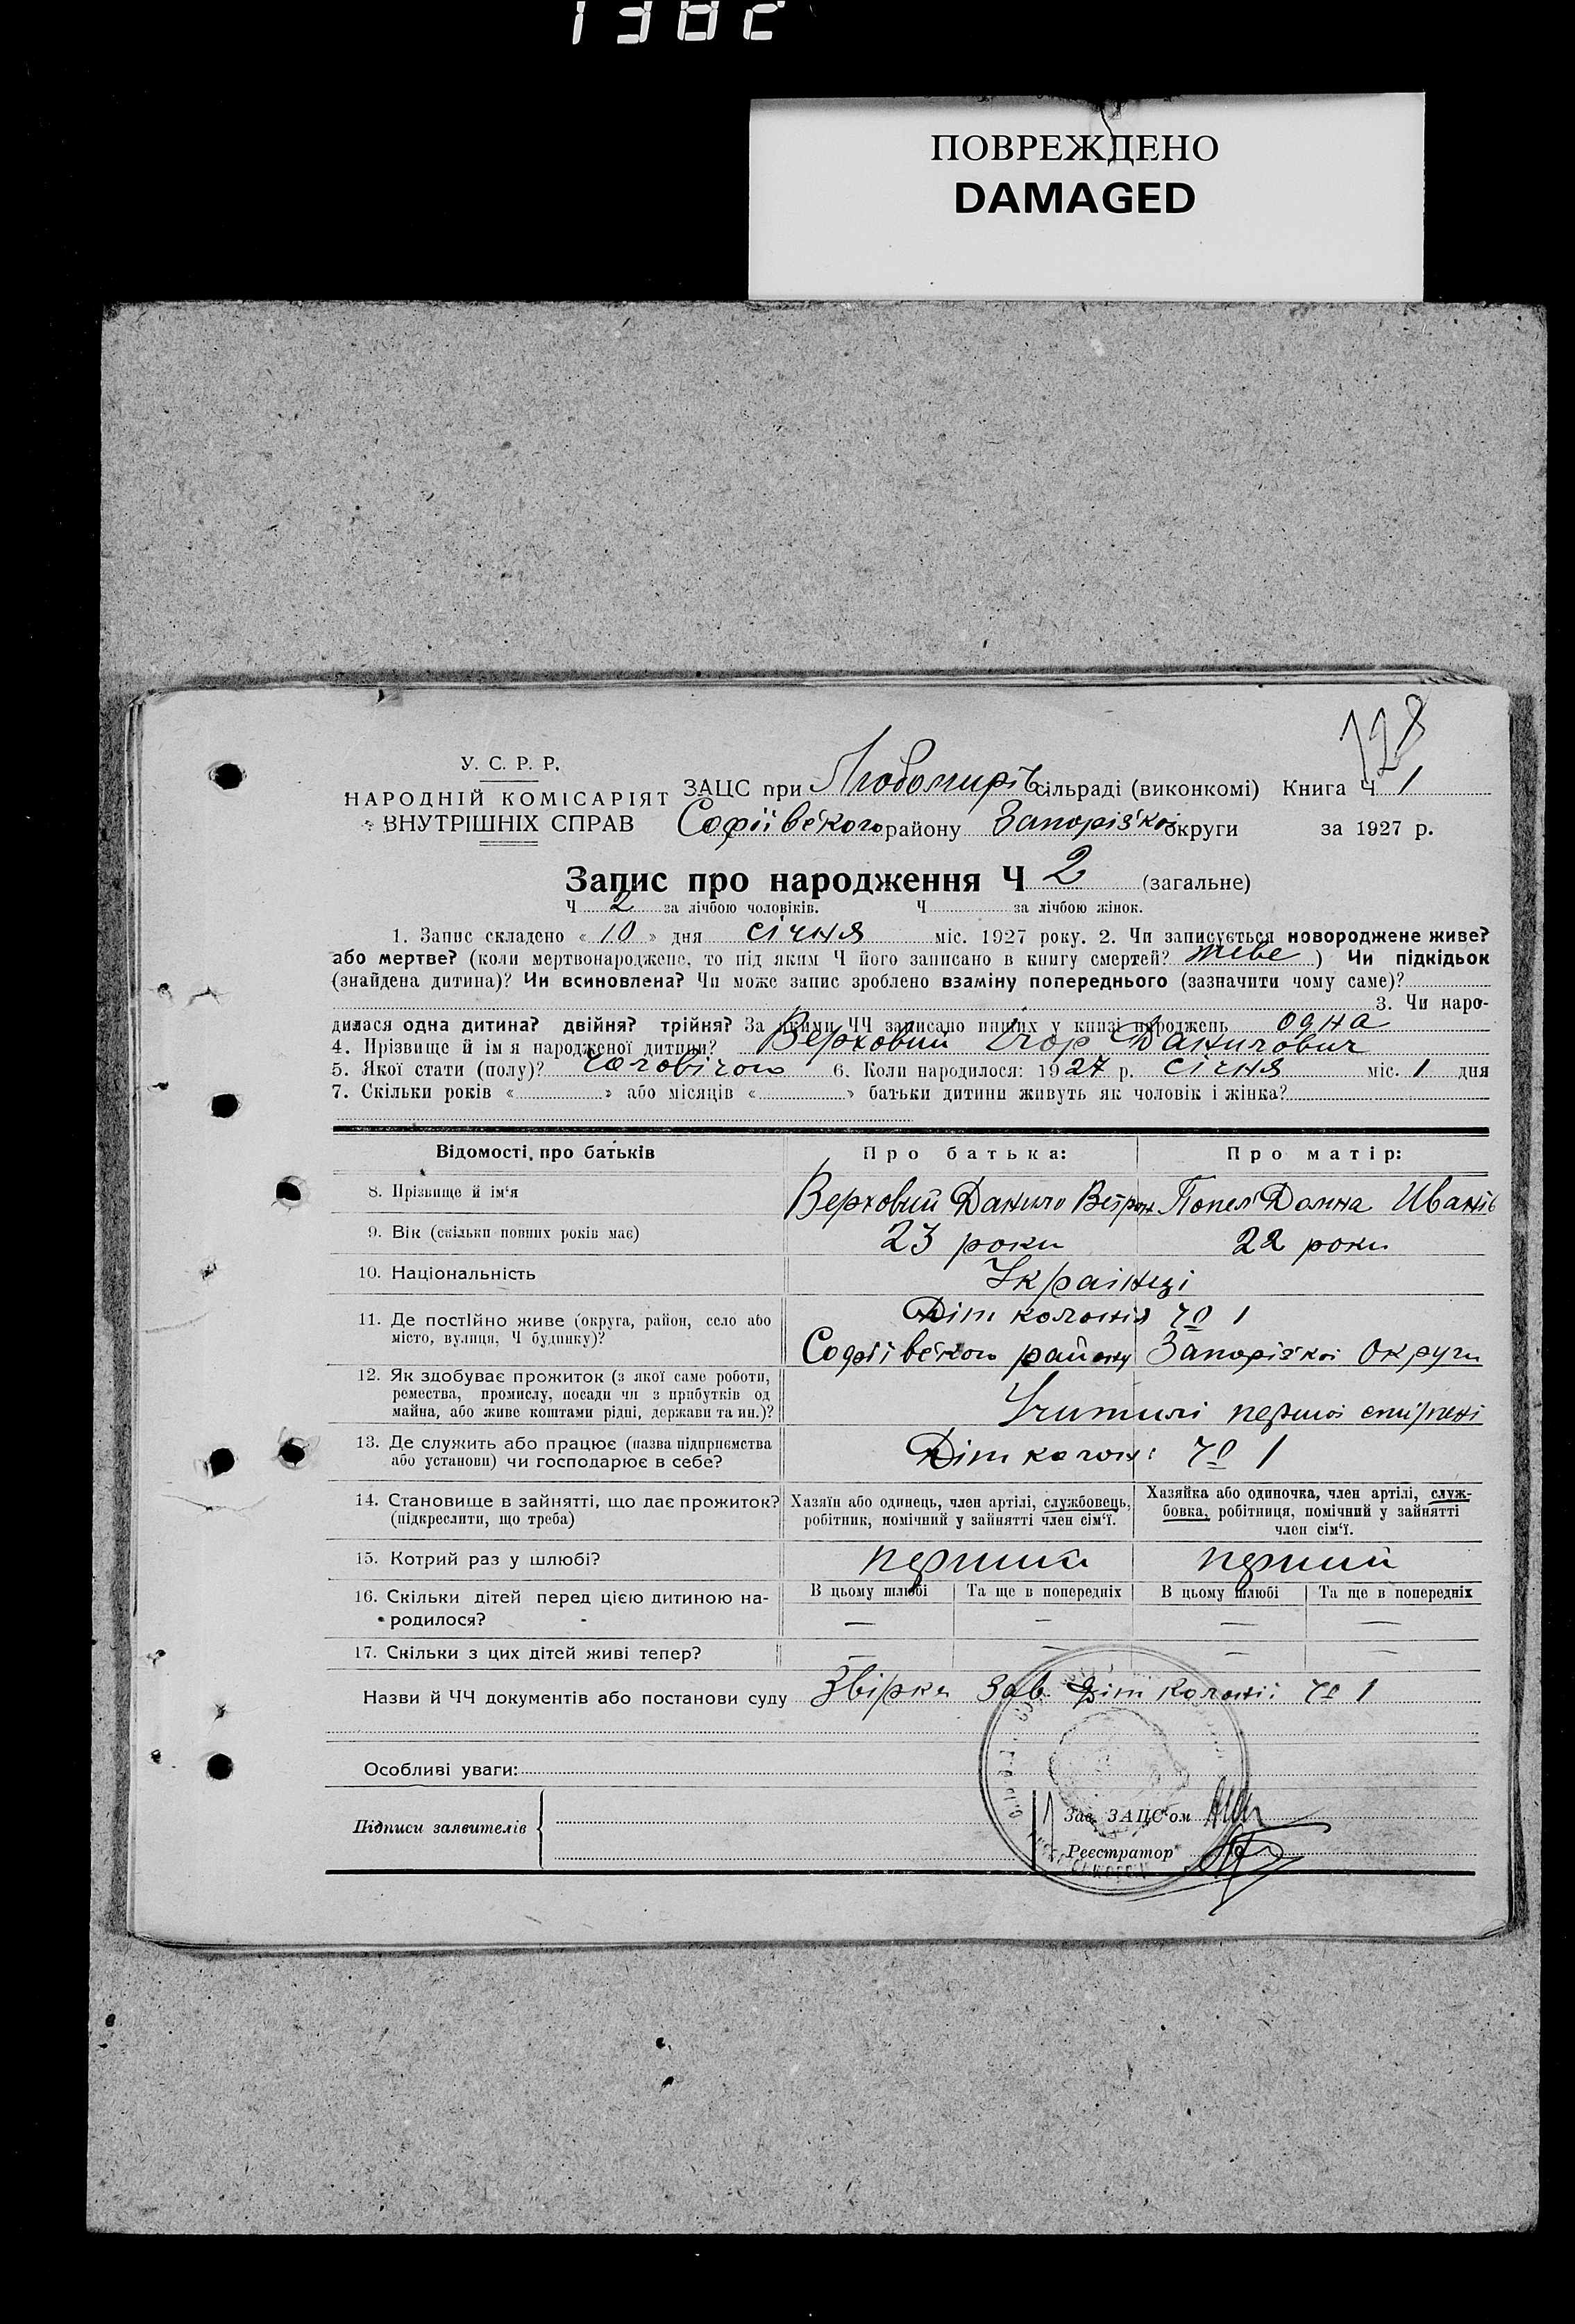 1382
ПОВРЕЖДЕНО
DAMAGED
128
У. С. Р. Р.
НАРОДНІЙ КОМІСАРІЯТ
ВНУТРІШНІХ СПРАВ
ЗАЦС при Любомирів сільраді (виконкомі) Книга Ч 1
Софіївського району Запорізької округи за 1927 р.
Запис про народження Ч 2 (загальне)
Ч 2 за лічбою чоловіків. Ч за лічбою жінок.
1. Запис складено « 10 » дня січня міс. 1927 року. 2. Чи записується новороджене живе?
або мертве? (коли мертвонароджене, то під яким Ч його записано в книгу смертей? живе ) Чи підкідьок
(знайдена дитина)? Чи всиновлена? Чи може запис зроблено взаміну попереднього (зазначити чому саме)?
3. Чи наро-
дилася одна дитина? двійня? трійня? За якими ЧЧ записано інших у книзі народжень одна
4. Прізвище й ім я народженої дитини? Верховий Ігор Данилович
5. Якої стати (полу)? чоловічою 6. Коли народилося: 1927 р. січня міс. 1 дня
7. Скільки років « » або місяців « » батьки дитини живуть як чоловік і жінка?
Відомості про батьків Про батька: Про матір:
8. Прізвище й ім'я Верховий Данило Попел Домна Иванів
9. Вік (скільки повних років має) 23 роки 22 роки
10. Національність Українці
11. Де постійно живе (округа, район, село або
місто, вулиця, Ч будинку)?
Діт колонія Ч 1
Софіївського району Запорізкої Округи
12. Як здобуває прожиток (з якої саме роботи,
ремества, промислу, посади чи з прибутків од
майна, або живе коштами рідні, держави та ин.)?
Учителі першої
13. Де служить або працює (назва підприємства
або установи) чи господарює в себе?
Діт колон: Ч 1
14. Становище в зайнятті, що дає прожиток?
(підкреслити, що треба)
Хазяїн або одинець, член артілі, службовець,
робітник, помічний у зайнятті член сім'ї.
Хазяйка або одиночка, член артілі, служ-
бовка, робітниця, помічний у зайнятті
член сім'ї.
15. Котрий раз у шлюбі? перший перший
16. Скільки дітей перед цією дитиною на-
родилося?
В цьому шлюбі Та ще в попередніх В цьому шлюбі Та ще в попередніх
— — — —
17. Скільки з цих дітей живі тепер? — — — —
Назви й ЧЧ документів або постанови суду Звірка Зав. Діт Колонії Ч 1
Особливі уваги:
Підписи заявителів
Зав. ЗАЦС'ом
Реєстратор